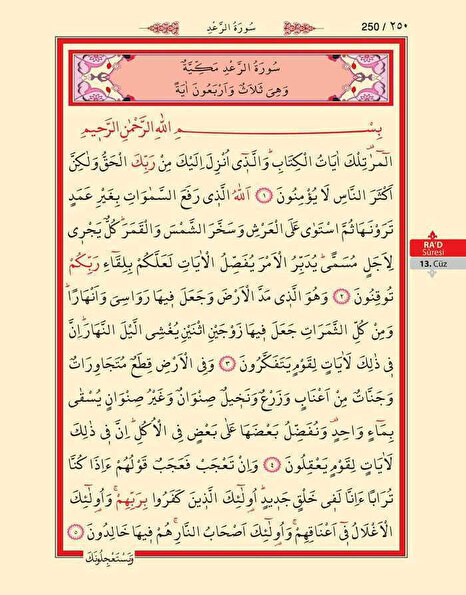 سُورَةُ الرَّعْدِ
250 / ٢٥٠
سُورَةُ الرَّعْدِ مَكِّيَّةٌ
وَهِيَ ثَلَاثٌ وَاَرْبَعُونَ اٰيَةً
بِسْمِ اللّٰهِ الرَّحْمٰنِ الرَّحٖيمِ
الٓمٓرٰ تِلْكَ اٰيَاتُ الْكِتَابِۜ وَالَّذٖٓي اُنْزِلَ اِلَيْكَ مِنْ رَبِّكَ الْحَقُّ وَلٰكِنَّ
اَكْثَرَ النَّاسِ لَا يُؤْمِنُونَ ﴿١﴾ اَللّٰهُ الَّذٖي رَفَعَ السَّمٰوَاتِ بِغَيْرِ عَمَدٍ
تَرَوْنَهَا ثُمَّ اسْتَوٰى عَلَى الْعَرْشِ وَسَخَّرَ الشَّمْسَ وَالْقَمَرَۜ كُلٌّ يَجْرٖي
لِاَجَلٍ مُسَمًّىۜ يُدَبِّرُ الْاَمْرَ يُفَصِّلُ الْاٰيَاتِ لَعَلَّكُمْ بِلِقَٓاءِ رَبِّكُمْ
تُوقِنُونَ ﴿٢﴾ وَهُوَ الَّذٖي مَدَّ الْاَرْضَ وَجَعَلَ فٖيهَا رَوَاسِيَ وَاَنْهَارًاۜ
وَمِنْ كُلِّ الثَّمَرَاتِ جَعَلَ فٖيهَا زَوْجَيْنِ اثْنَيْنِ يُغْشِي الَّيْلَ النَّهَارَۜ اِنَّ
فٖي ذٰلِكَ لَاٰيَاتٍ لِقَوْمٍ يَتَفَكَّرُونَ ﴿٣﴾ وَفِي الْاَرْضِ قِطَعٌ مُتَجَاوِرَاتٌ
وَجَنَّاتٌ مِنْ اَعْنَابٍ وَزَرْعٌ وَنَخٖيلٌ صِنْوَانٌ وَغَيْرُ صِنْوَانٍ يُسْقٰى
بِمَٓاءٍ وَاحِدٍ۠ وَنُفَضِّلُ بَعْضَهَا عَلٰى بَعْضٍ فِي الْاُكُلِۜ اِنَّ فٖي ذٰلِكَ
لَاٰيَاتٍ لِقَوْمٍ يَعْقِلُونَ ﴿٤﴾ وَاِنْ تَعْجَبْ فَعَجَبٌ قَوْلُهُمْ ءَاِذَا كُنَّا
تُرَابًا ءَاِنَّا لَفٖي خَلْقٍ جَدٖيدٍۜ اُو۬لٰٓئِكَ الَّذٖينَ كَفَرُوا بِرَبِّهِمْۚ وَاُو۬لٰٓئِكَ
الْاَغْلَالُ فٖٓي اَعْنَاقِهِمْۚ وَاُو۬لٰٓئِكَ اَصْحَابُ النَّارِۚ هُمْ فٖيهَا خَالِدُونَ ﴿٥﴾
وَيَسْتَعْجِلُونَكَ
RA'D
Sûresi
13. Cüz